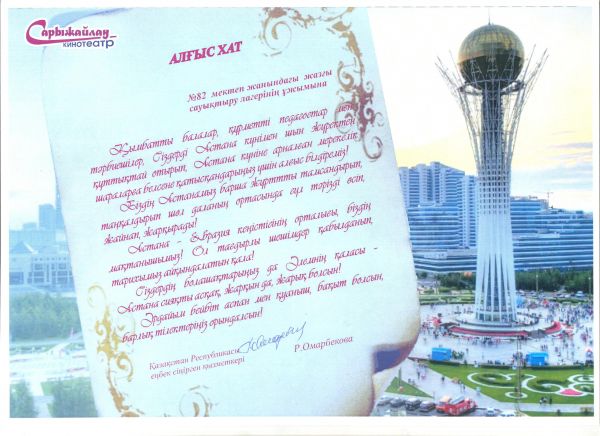 Сарыжайлау
кинотеатр
АЛҒЫС ХАТ
№82 мектеп жанындағы жазғы
сауықтыру лагерінің ұжымына
Қымбатты балалар, құрметті педагогтар мен
тәрбиешілер, Сіздерді Астана күнімен шын жүректен
құттықтай отырып, Астана күніне арналған мерекелік
шараларға белсене қатысқандарыңыз үшін алғыс білдіреміз!
Біздің Астанамыз барша жұртты тамсандырып,
таңқалдырып шөл даланың ортасында гүл тәрізді өсіп,
жайнап, жарқырады!
Астана - Еуразия кеңістігінің орталығы, біздің
мақтанышымыз! Ол тағдырлы шешімдер қабылданып,
тарихымыз айқындалатын қала!
Сіздердің болашақтарыңыз да Әлемнің қаласы -
Астана сияқты асқақ, жарқын да, жарық болсын!
Әрдайым бейбіт аспан мен қуаныш, бақыт болсын,
барлық тілектеріңіз орындалсын!
Қазақстан Республикасы
еңбек сіңірген қызметкері
Р.Омарбекова